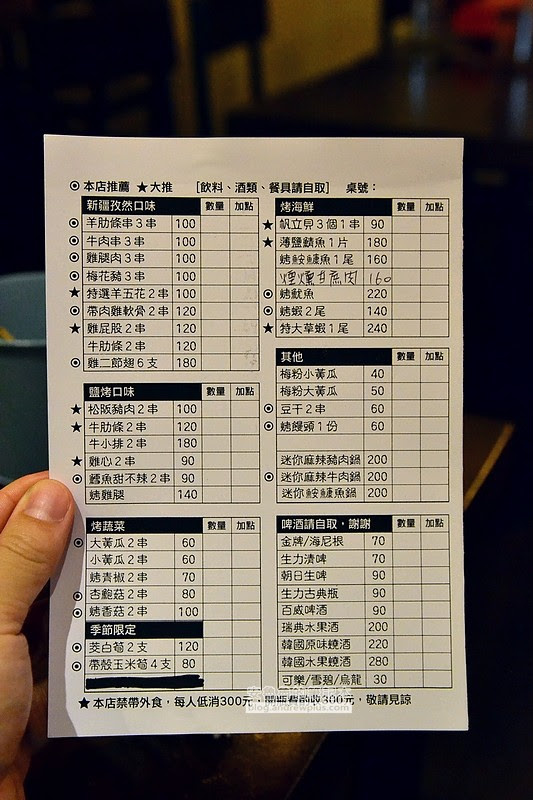 ◎本店推薦 ★大推 [飲料、酒類、餐具請自取] 桌號：
新疆孜然口味 數量 加點
◎ 羊肋條串3串 100
◎ 牛肉串3串 100
◎ 雞腿肉3串 100
◎ 梅花豬3串 100
★ 特選羊五花2串 100
◎ 帶肉雞軟骨2串 120
★ 雞屁股2串 120
牛肋條2串 120
◎ 雞二節翅6支 180
鹽烤口味 數量 加點
★ 松阪豬肉2串 100
★ 牛肋條2串 120
牛小排2串 180
★ 雞心2串 90
◎ 鱈魚甜不辣2串 90
烤雞腿 140
烤蔬菜 數量 加點
◎ 大黃瓜2串 60
小黃瓜2串 60
烤青椒2串 70
◎ 杏鮑菇2串 80
◎ 烤香菇2串 100
季節限定
◎ 茭白筍2支 120
◎ 帶殼玉米筍4支 80
烤海鮮 數量 加點
★ 帆立貝3個1串 90
★ 薄鹽鯖魚1片 180
烤鮟鱇魚1尾 160
煙燻甘蔗肉 160
◎ 烤魷魚 220
◎ 烤蝦2尾 140
★ 特大草蝦1尾 240
其他 數量 加點
梅粉小黃瓜 40
梅粉大黃瓜 50
◎ 豆干2串 60
◎ 烤饅頭1份 60
迷你麻辣豬肉鍋 200
◎ 迷你麻辣牛肉鍋 200
迷你鮟鱇魚鍋 200
啤酒請自取，謝謝 數量 加點
金牌/海尼根 70
生力清啤 70
朝日生啤 90
生力古典瓶 90
百威啤酒 90
瑞典水果酒 200
韓國原味燒酒 220
韓國水果燒酒 280
可樂/雪碧/烏龍 30
★本店禁帶外食，每人低消300元，開瓶費酌收300元，敬請見諒
blog.andrewplus.com